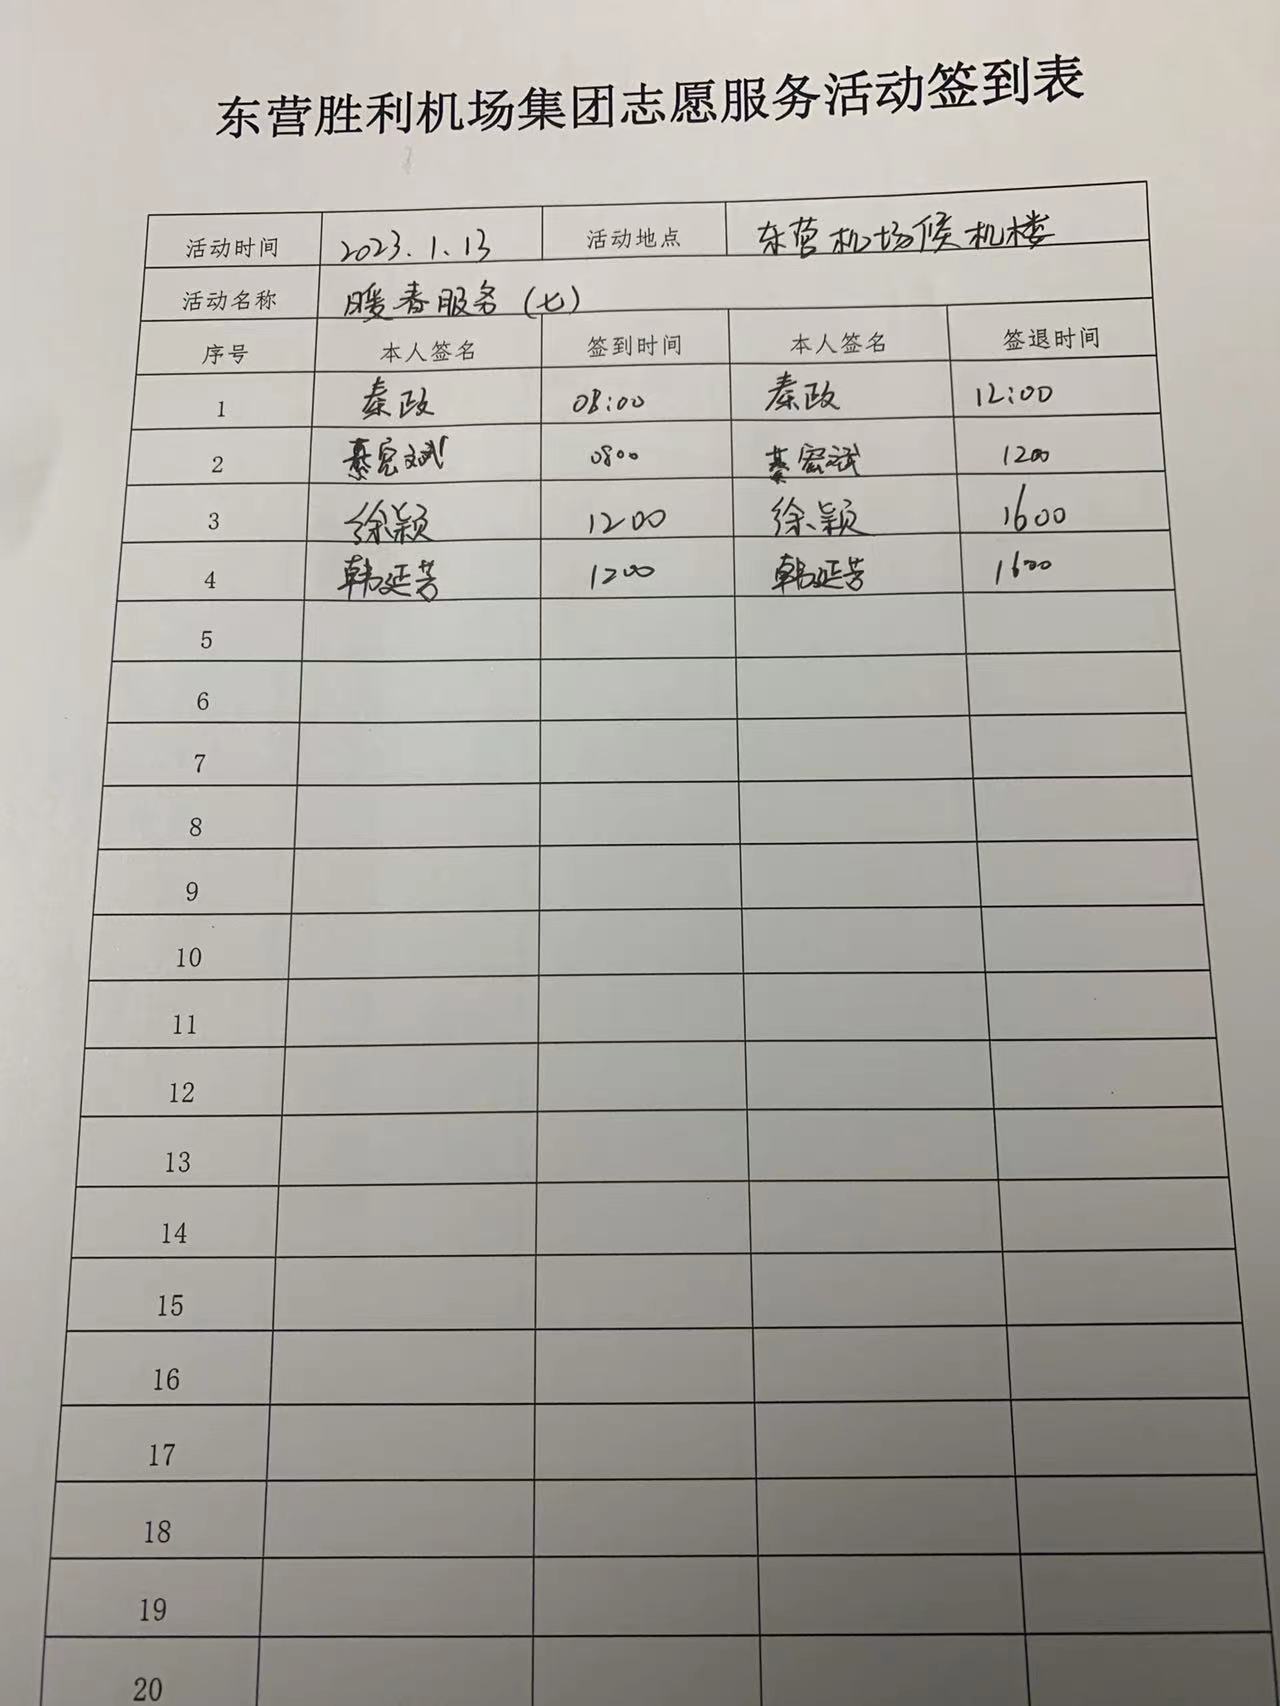 东营胜利机场集团志愿服务活动签到表
活动时间 2023.1.13 活动地点 东营机场候机楼
活动名称 暖春服务（七）
序号 本人签名 签到时间 本人签名 签退时间
1 秦政 08:00 秦政 12:00
2 綦宏斌 0800 綦宏斌 1200
3 徐颖 1200 徐颖 1600
4 韩延芳 1200 韩延芳 1600
5
6
7
8
9
10
11
12
13
14
15
16
17
18
19
20